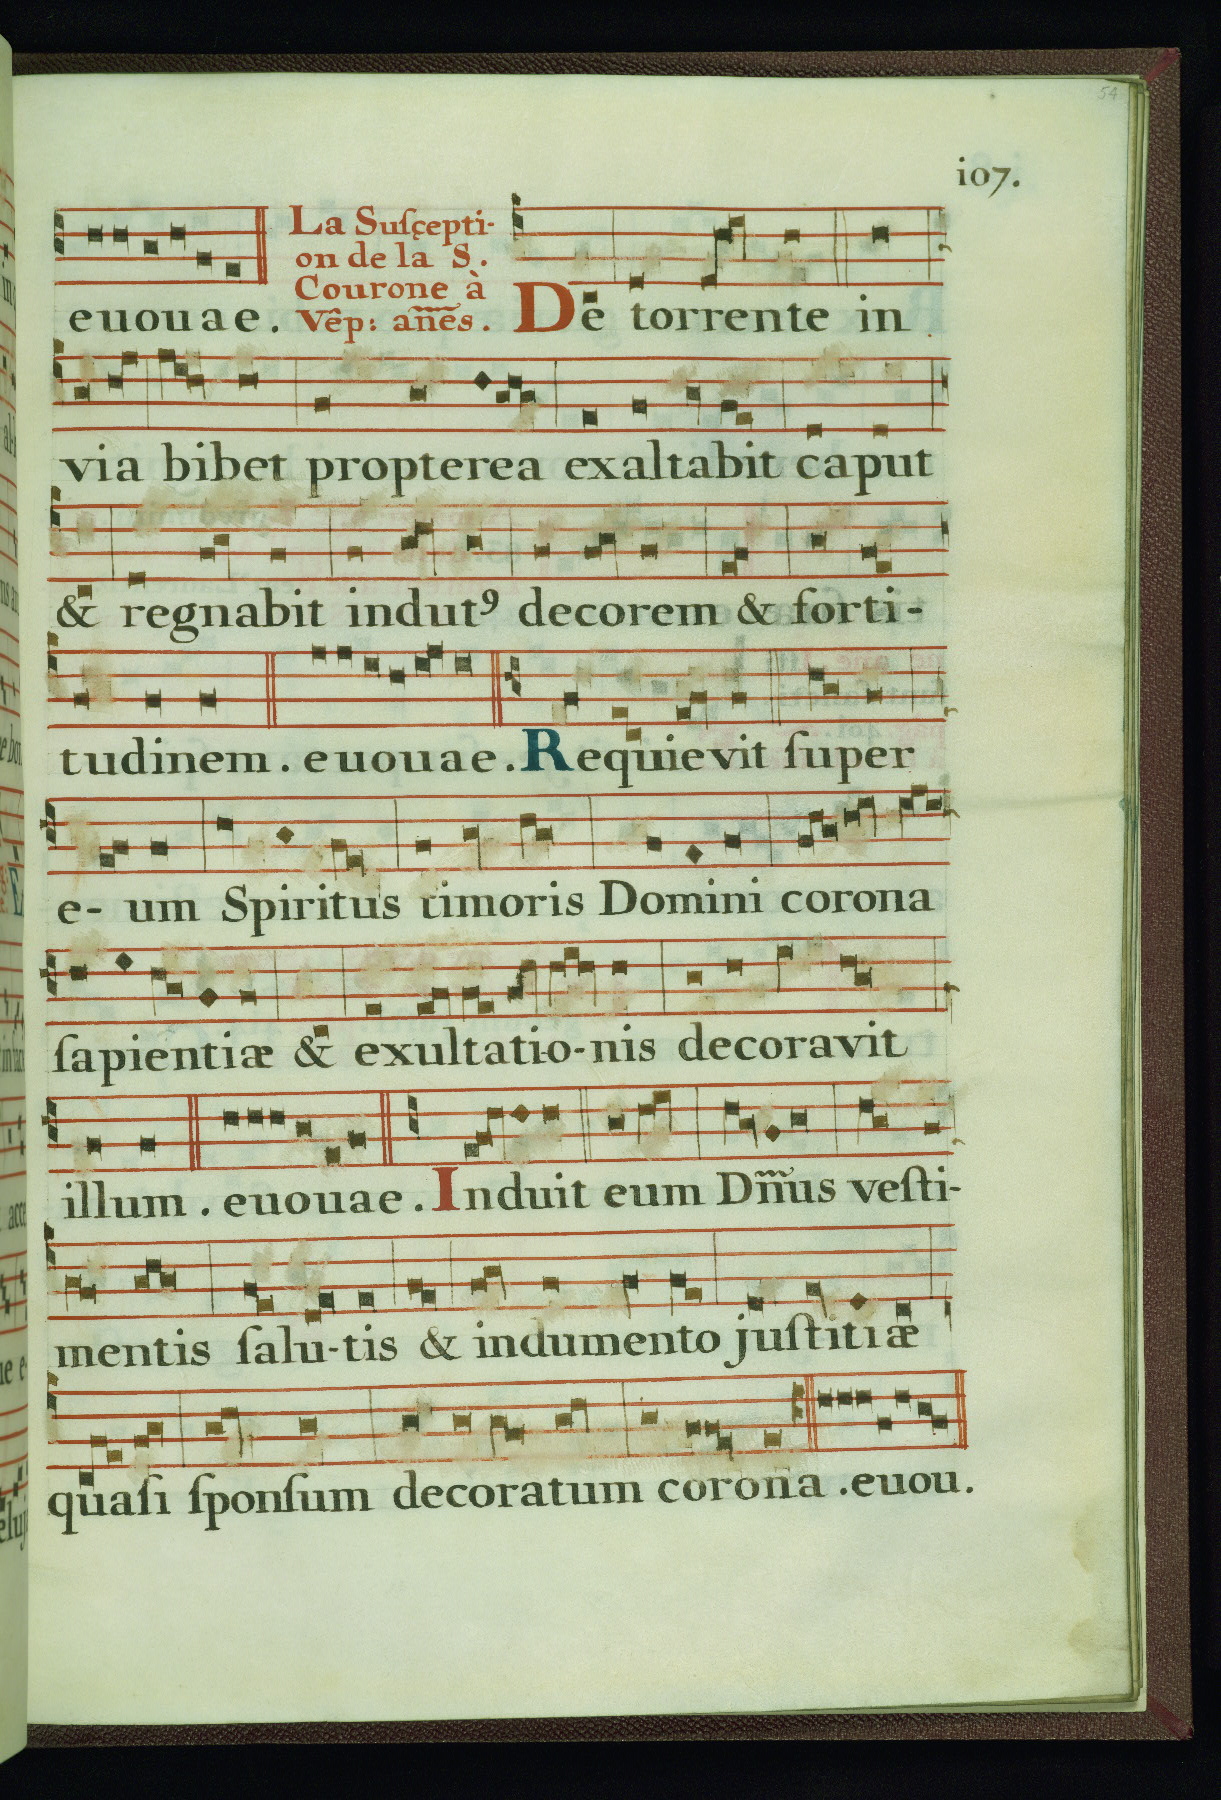 54
107.
La Suſcepti-
on de la S.
Courone à
Vêp: añes.
euouae. De torrente in
via bibet propterea exaltabit caput
& regnabit indutꝰ decorem & forti-
tudinem. euouae. Requievit ſuper
e- um Spiritus timoris Domini corona
ſapientiæ & exultatio-nis decoravit
illum. euouae. Induit eum Dñus veſti-
mentis ſalu-tis & indumento juſtitiæ
quaſi ſponſum decoratum corona. euou.